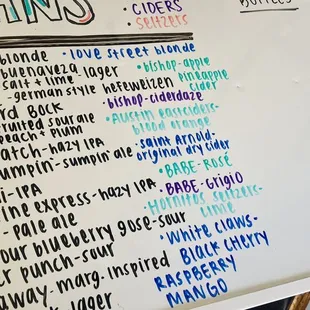 ANS
• CIDERS
• SELTZERS
BOTTLES
blonde
buenaveza lager
salt + lime
-german style hefeweizen
rd bock
fruited sour ale
peach + plum
atch-hazy IPA
umpin-sumpin' ale
si-IPA
ine express-hazy IPA
- pale ale
our blueberry gose-sour
er punch-sour
away-marg-inspired
lager
• love street blonde
• bishop-apple
pineapple
cider
• bishop-ciderdaze
• Austin eastciders-
blood orange
• saint arnold-
original dry cider
• BABE-Rosé
• BABE-Grigio
• Hornitos seltzers-
lime
• White Claws-
BLACK CHERRY
RASPBERRY
MANGO